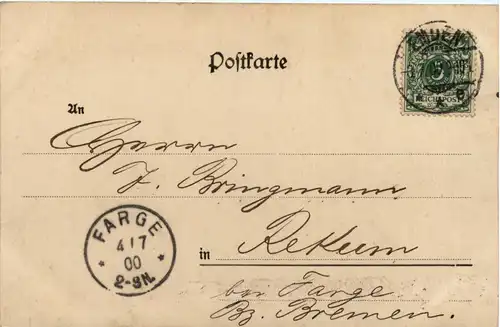 Postkarte
5
REICHSPOST
An
Herrn
J. Bringmann
in Rekum
bei Farge
Bz. Bremen.
FARGE
4/7
00
2-3N.